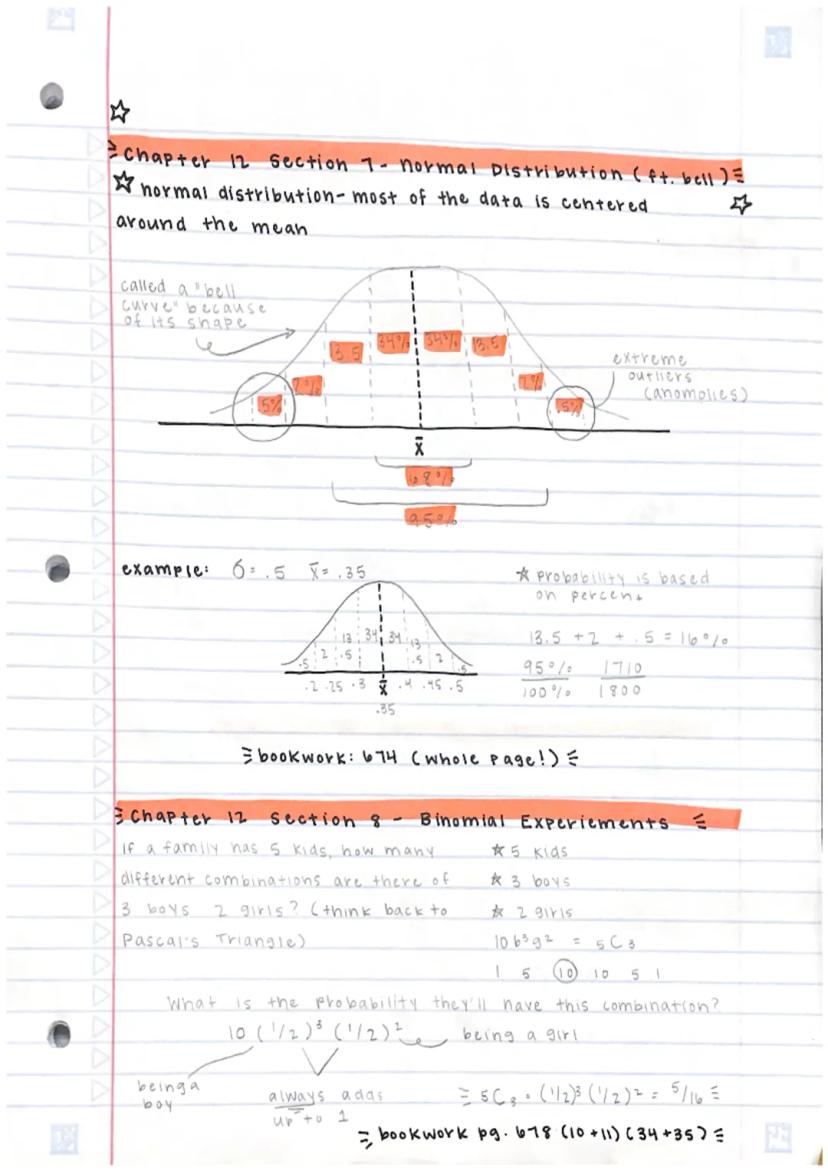 Chapter 12 Section 7 - Normal Distribution (ft. bell)
normal distribution - most of the data is centered
around the mean
called a "bell
curve" because
of its shape
34% 34%
13.5 13.5
2% 2%
.5% .5%
extreme
outliers
(anomplies)
x̄
68%
95%
example: σ = .5 x̄ = .35
probability is based
on percent
13.5 + 2 + .5 = 16%
95% 1710
100% 1800
.5 2 13.5 34 34 13.5 2 .5
.2 .25 .3 x̄ .4 .45 .5
.35
bookwork: 674 (whole page!)
Chapter 12 Section 8 - Binomial Experiements
if a family has 5 kids, how many
different combinations are there of
3 boys 2 girls? (think back to
Pascal's Triangle)
5 kids
3 boys
2 girls
10 b³g² = 5C3
1 5 10 10 5 1
What is the probability they'll have this combination?
10 (1/2)³ (1/2)² being a girl
being a
boy
always adds
up to 1
5C3 • (1/2)³ (1/2)² = 5/16
bookwork pg. 678 (10+11) (34+35)